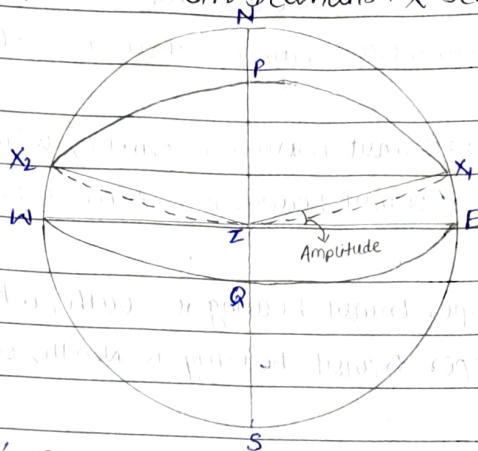 N
P
X2
X1
W
Z
E
Amplitude
Q
S